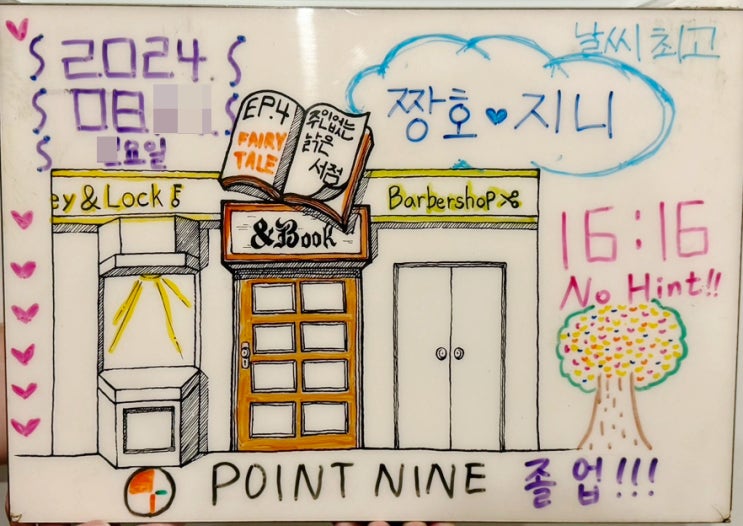 2024.
08
요일
날씨 최고
짱호♥지니
EP.4
FAIRY
TALE
주인없는
낡은
서점
ey & Lock
&Book
Barbershop
16:16
No Hint!!
POINT NINE
졸업!!!